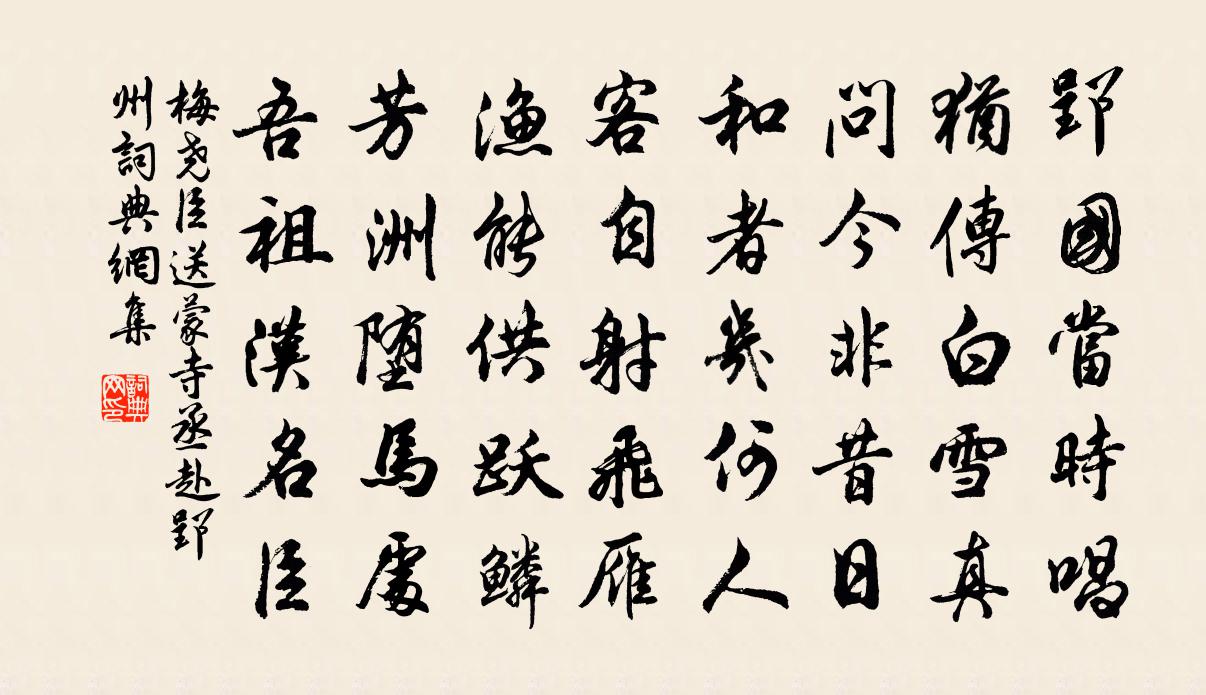 郢國當時唱
猶傳白雪真
問今非昔日
和者幾何人
客自射飛雁
漁能供跃鱗
芳洲堕馬處
吾祖漢名臣
梅尧臣送蒙寺丞赴郢
州詞典網集
詞典
网印